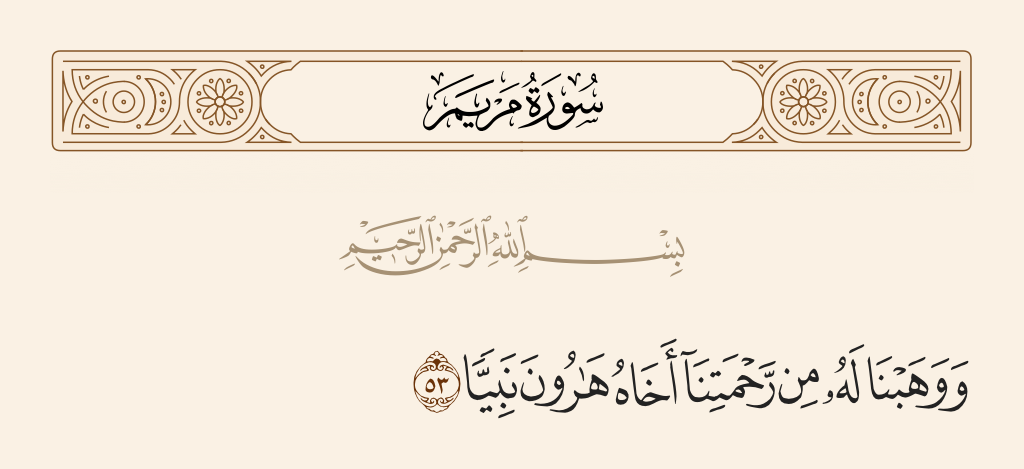 سُورَةُ مَرْيَمَ
بِسْمِ ٱللَّهِ ٱلرَّحْمَٰنِ ٱلرَّحِيمِ
وَوَهَبْنَا لَهُۥ مِن رَّحْمَتِنَآ أَخَاهُ هَٰرُونَ نَبِيًّا ٥٣